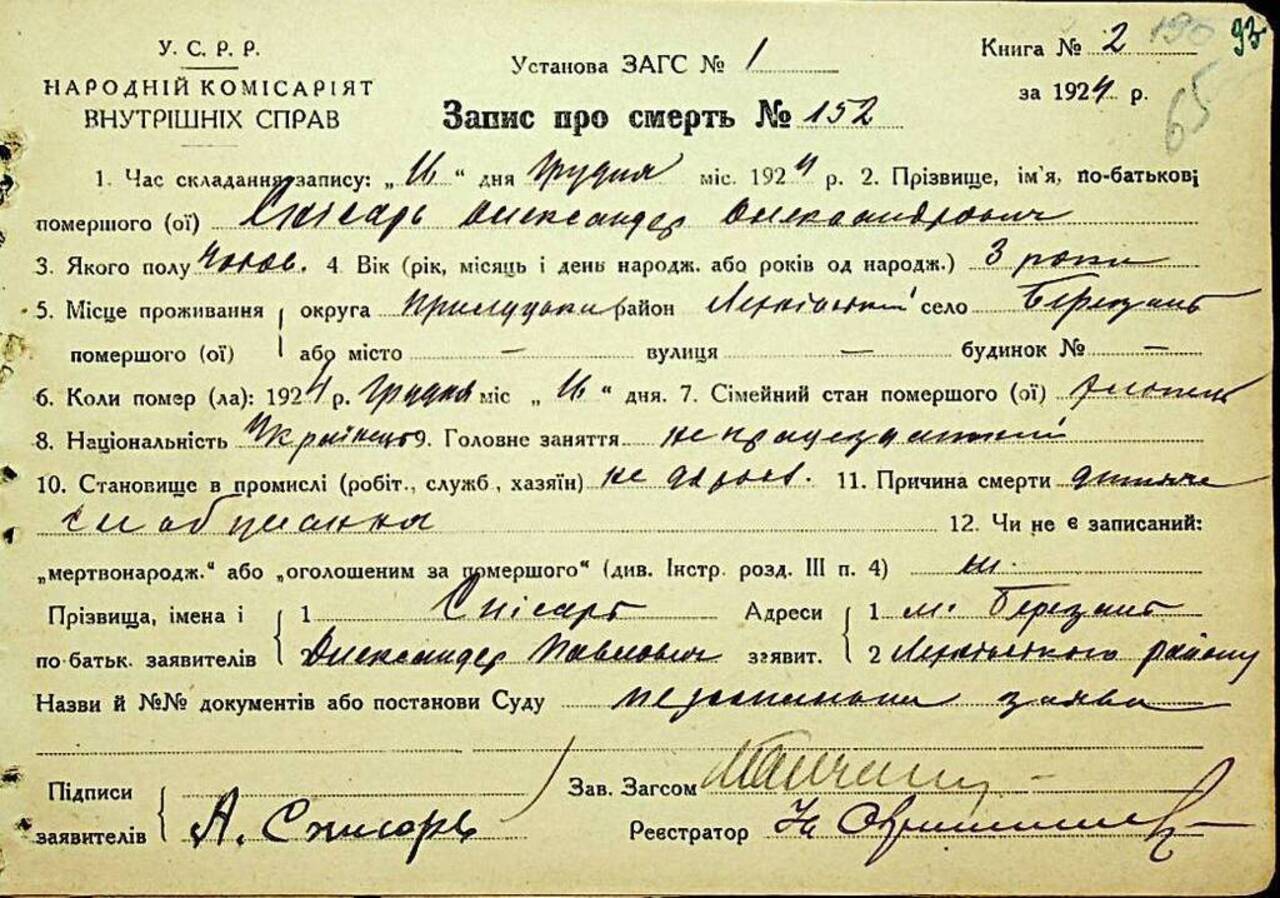 У. С. Р. Р.
НАРОДНІЙ КОМІСАРІЯТ
ВНУТРІШНІХ СПРАВ
Установа ЗАГС № 1
Книга № 2 190 93
за 1924 р.
65
Запис про смерть № 152
1. Час складання запису: „ “ дня грудня міс. 1924 р. 2. Прізвище, ім'я, по-батькові
помершого (ої) Снісарь Олександер Олександрович
3. Якого полу чолов. 4. Вік (рік, місяць і день народж. або років од народж.) 3 роки
5. Місце проживання округа Прилуцька район село Березань
помершого (ої) або місто — вулиця — будинок № —
6. Коли помер (ла): 1924 р. грудня міс „ “ дня. 7. Сімейний стан помершого (ої) хлопець
8. Національність Українець 9. Головне заняття непрацездатний
10. Становище в промислі (робіт., служб., хазяїн) не 11. Причина смерти дитяче
12. Чи не є записаний:
„мертвонародж.“ або „оголошеним за помершого“ (див. Інстр. розд. III п. 4) ні.
Прізвища, імена і 1 Снісарь Адреси 1 м. Березань
по батьк. заявителів Олександер Павлович заявит. 2 району
Назви й №№ документів або постанови Суду заява
Підписи Зав. Загсом
заявителів А. Снисарь Реєстратор